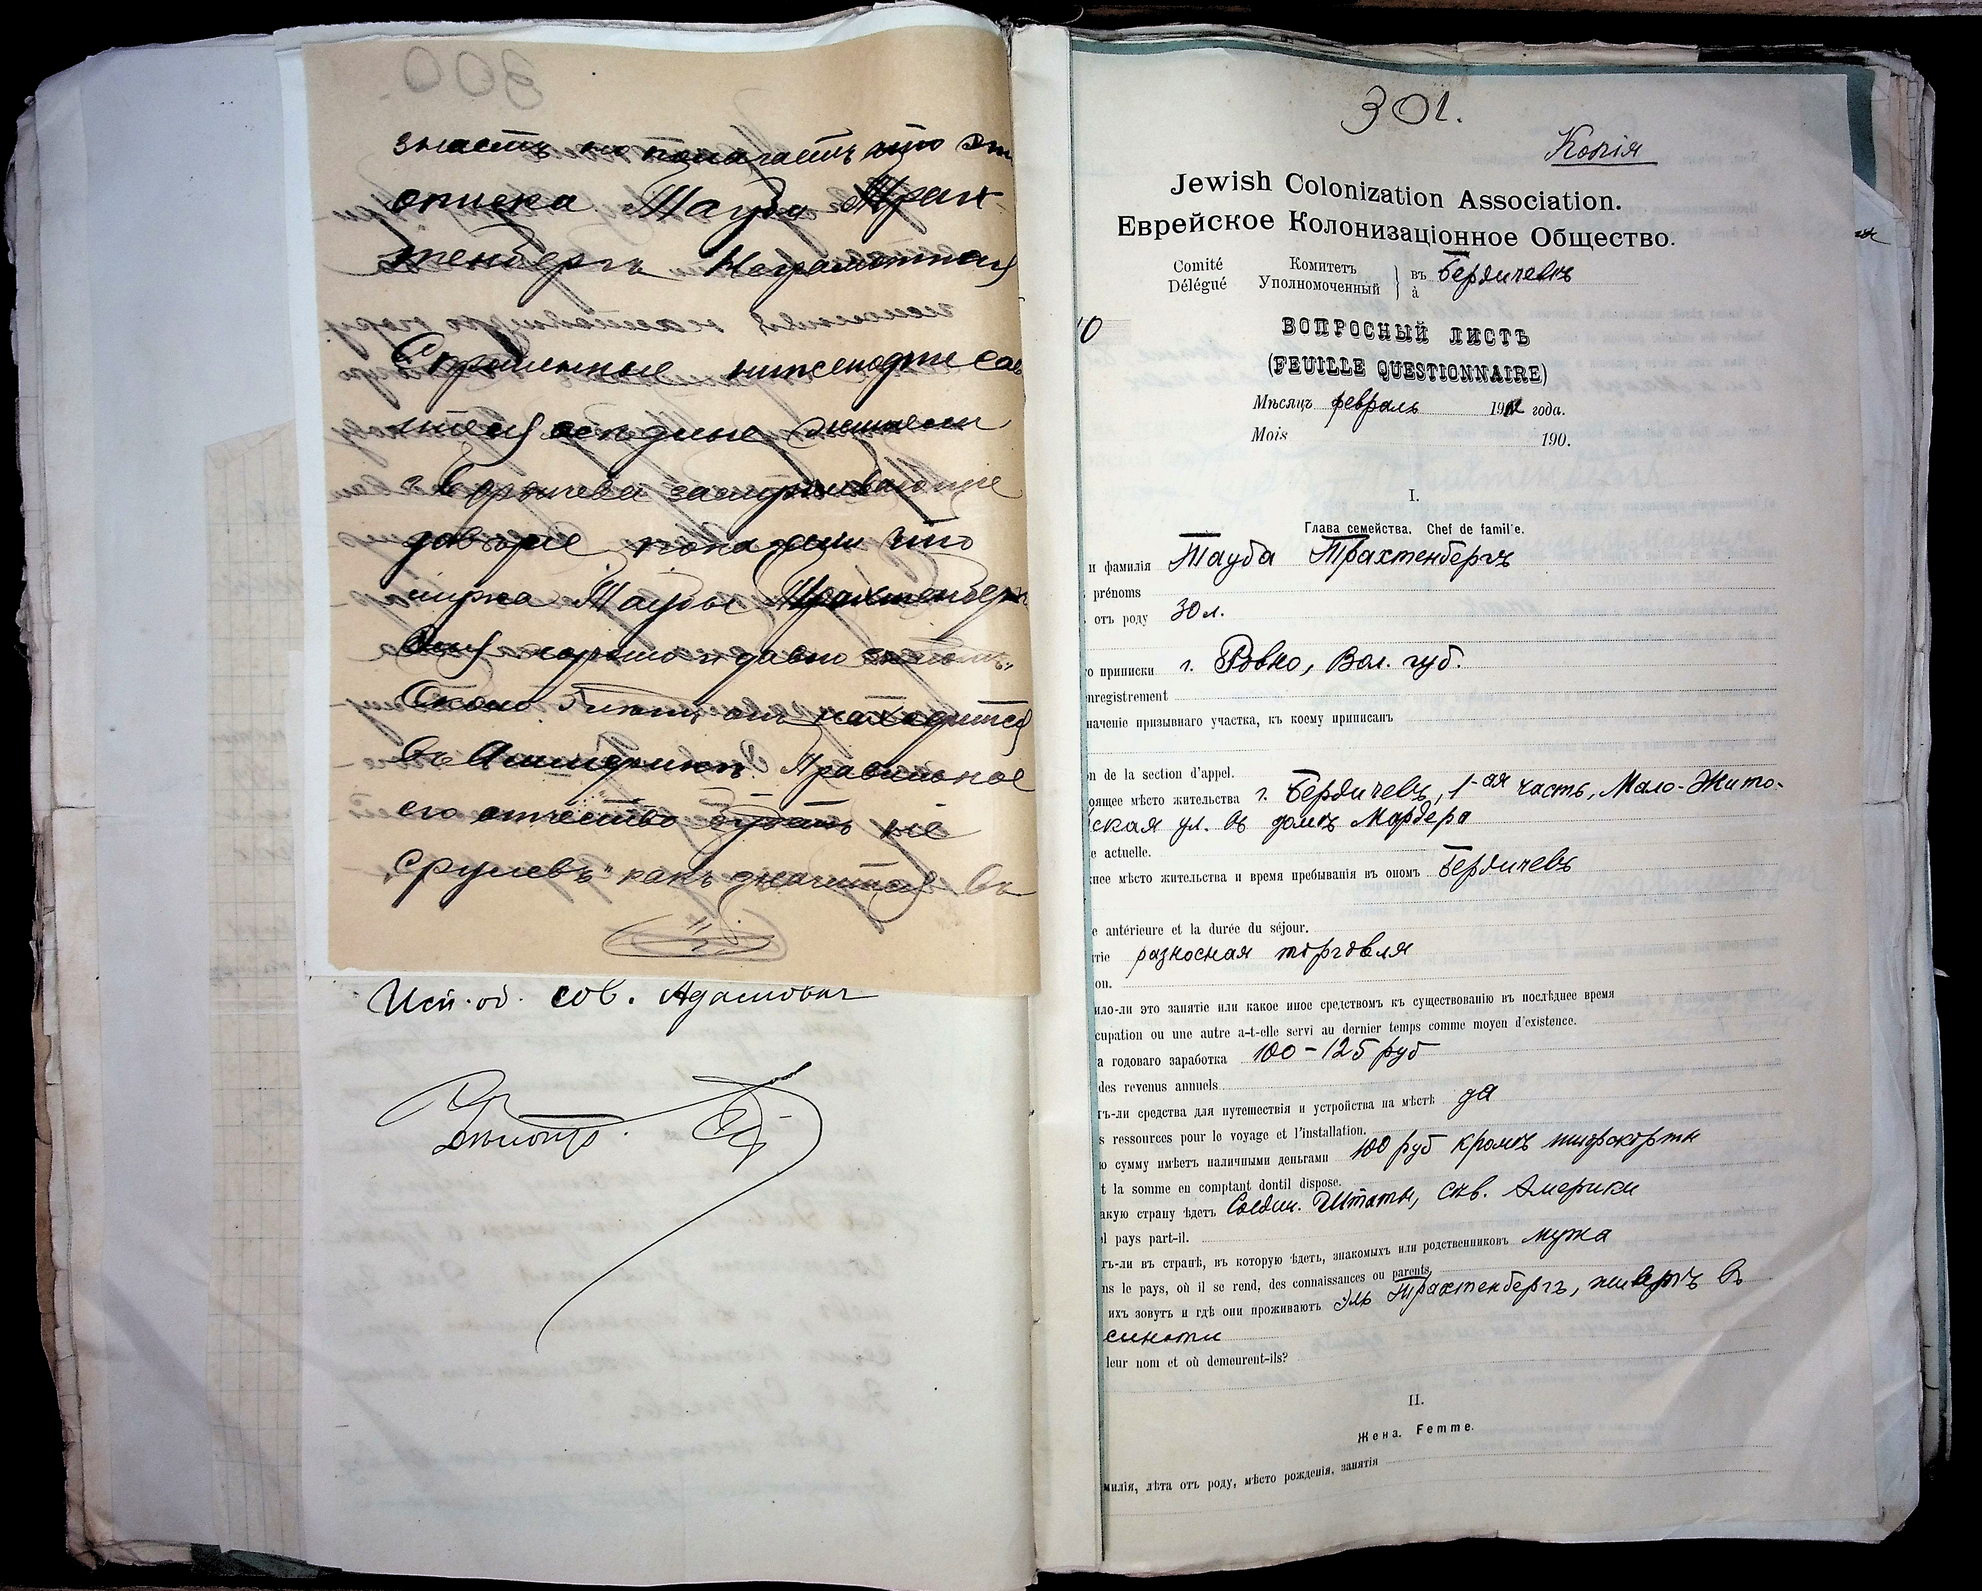 300
знаетъ но полагаетъ что
описка Тауба Трах
тенбергъ Неграмотная
Спрошенные нижеподписав
шіеся
г Бердичева заслуживающіе
довѣріе показали что
мужа Таубы Трахтенбергъ
хорошо и давно
находится
въ Америкѣ Правильное
его отчество не
Срулевъ" какъ значится въ
Исп. об. сов.
301.
Копія
Jewish Colonization Association.
Еврейское Колонизаціонное Общество.
Comité Комитетъ въ Бердичевѣ
Délégué Уполномоченный à
ВОПРОСНЫЙ ЛИСТЪ
(FEUILLE QUESTIONNAIRE)
Мѣсяцъ февраль 1912 года.
Mois 190 .
I.
Глава семейства. Chef de famille.
и фамилія Тауба Трахтенбергъ
prénoms
отъ роду 30 л.
о приписки г. Ровно, Вол. губ.
nregistrement
наченіе призывнаго участка, къ коему приписанъ
n de la section d'appel.
оящее мѣсто жительства г. Бердичевъ, 1-ая часть, Мало-Жито-
ская ул. въ домѣ Мардера
e actuelle.
нее мѣсто жительства и время пребыванія въ ономъ Бердичевъ
e antérieure et la durée du séjour.
тіе разносная торговля
on.
ило-ли это занятіе или какое иное средствомъ къ существованію въ послѣднее время
cupation ou une autre a-t-elle servi au dernier temps comme moyen d'existence.
а годоваго заработка 100-125 руб
des revenus annuels
тъ-ли средства для путешествія и устройства на мѣстѣ да
s ressources pour le voyage et l'installation.
ю сумму имѣетъ наличными деньгами 100 руб кромѣ шифкарты
t la somme en comptant dontil dispose.
акую страну ѣдетъ Соедин. Штаты, Сѣв. Америки
l pays part-il.
тъ-ли въ странѣ, въ которую ѣдетъ, знакомыхъ или родственниковъ мужа
ns le pays, où il se rend, des connaissances ou parents
ихъ зовутъ и гдѣ они проживаютъ Эль Трахтенбергъ, живетъ въ
синати
leur nom et où demeurent-ils?
II.
Жена. Femme.
милія, лѣта отъ роду, мѣсто рожденія, занятія